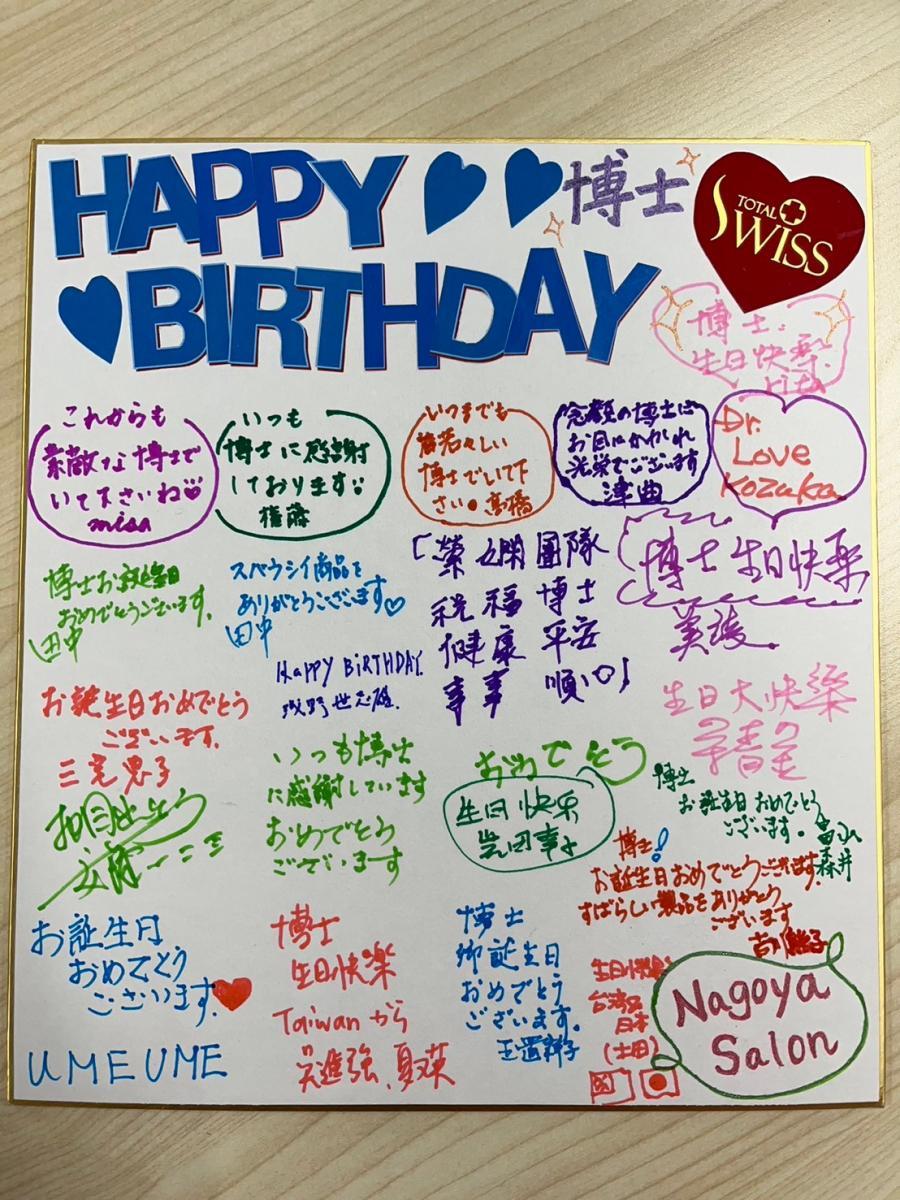 HAPPY 博士
BIRTHDAY
TOTAL
SWISS
博士.
生日快樂.
rita
これからも
素敵な博士で
いて下さいね♡
misa
いつも
博士に感謝
しております
いつまでも
若々しい
博士でいて下
さい 高橋
念願の博士に
お目にかかれ
光栄でございます
津曲
Dr.
Love
Kozuka
博士お誕生日
おめでとうございます.
田中
スペウシイ商品を
ありがとうございます♡
田中
「榮 團隊
祝福 博士
健康 平安
事事 順心」
博士 生日快樂
HaPPY BiRTHDAY.
お誕生日おめでとう
ございます.
いつも博士
に感謝しています
おめでとう
ございます
おめでとう
生日快乐
生日大快樂
博士
お誕生日おめでとう
ございます。
森井
博士!
お誕生日おめでとうございます.
すばらしい製品をありがとう
ございます
お誕生日
おめでとう
ございます.
UMEUME
博士
生日快樂
Taiwanから
吳進強、夏英
博士
御誕生日
おめでとう
ございます.
生日快樂
台湾
日本
(土田)
Nagoya
Salon